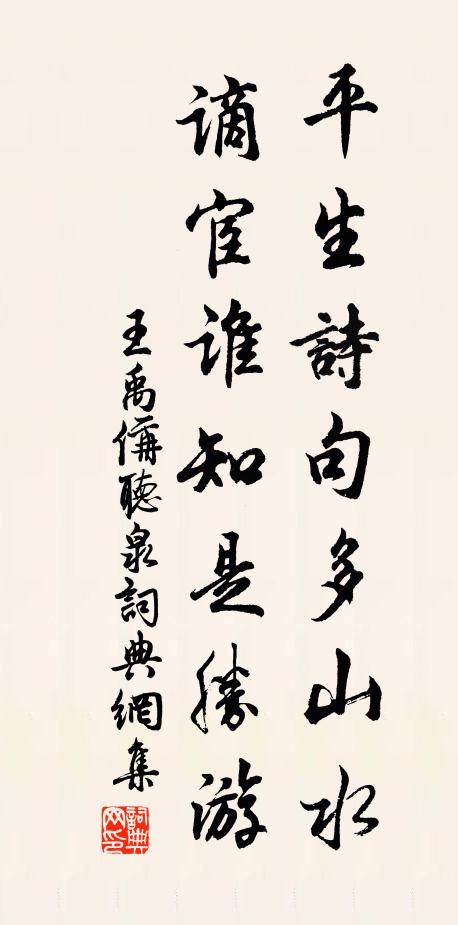 平生詩句多山水
謫宦誰知是勝游
王禹偁聽泉詞典網集
詞典網印